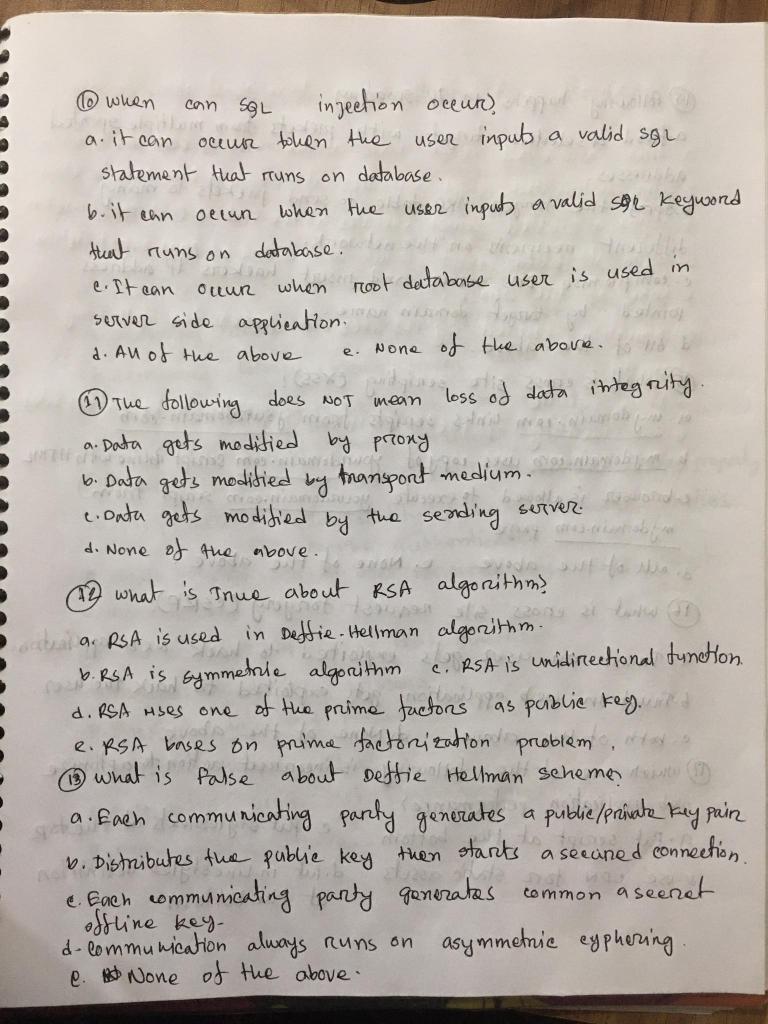 10 when can SQL injection occur?
a. it can occur when the user inputs a valid SQL
statement that runs on database.
b. it can occur when the user inputs a valid SQL keyword
that runs on database.
c. It can occur when root database user is used in
server side application.
d. All of the above e. None of the above.
11 The following does NOT mean loss of data integrity.
a. Data gets modified by proxy
b. Data gets modified by transport medium.
c. Data gets modified by the sending server.
d. None of the above.
12 what is True about RSA algorithm?
a. RSA is used in Deffie-Hellman algorithm.
b. RSA is symmetric algorithm c. RSA is unidirectional function.
d. RSA uses one of the prime factors as public key.
e. RSA bases on prime factorization problem.
13 what is false about Deffie Hellman scheme?
a. Each communicating party generates a public/private key pair
b. Distributes the public key then starts a secured connection.
c. Each communicating party generates common a secret
offline key.
d- communication always runs on asymmetric cyphering.
e. None of the above.